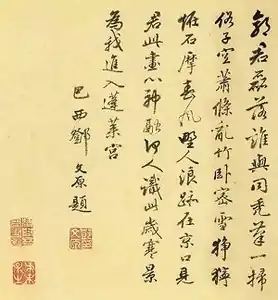 郭君磊落誰與同禿筆一掃
俗子空蕭條亂竹卧密雪猙獰
恠石摩春風野人浪跡在京口見
君此畫心神融何人識此歲寒景
為我進入蓬萊宮
巴西鄧文原題